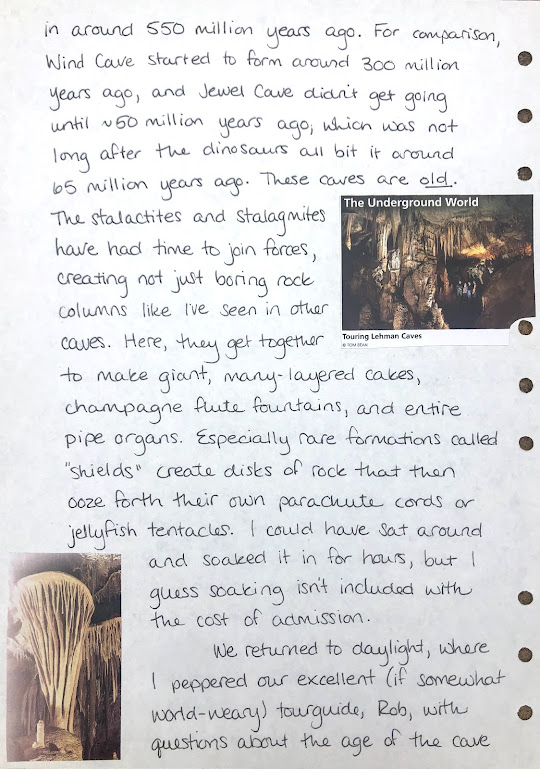 in around 550 million years ago. For comparison,
Wind Cave started to form around 300 million
years ago, and Jewel Cave didn't get going
until ~50 million years ago, which was not
long after the dinosaurs all bit it around
65 million years ago. These caves are old.
The stalactites and stalagmites
have had time to join forces,
creating not just boring rock
columns like I've seen in other
caves. Here, they get together
The Underground World
Touring Lehman Caves
© TOM BEAN
to make giant, many-layered cakes,
champagne flute fountains, and entire
pipe organs. Especially rare formations called
"shields" create disks of rock that then
ooze forth their own parachute cords or
jellyfish tentacles. I could have sat around
and soaked it in for hours, but I
guess soaking isn't included with
the cost of admission.
We returned to daylight, where
I peppered our excellent (if somewhat
world-weary) tourguide, Rob, with
questions about the age of the cave